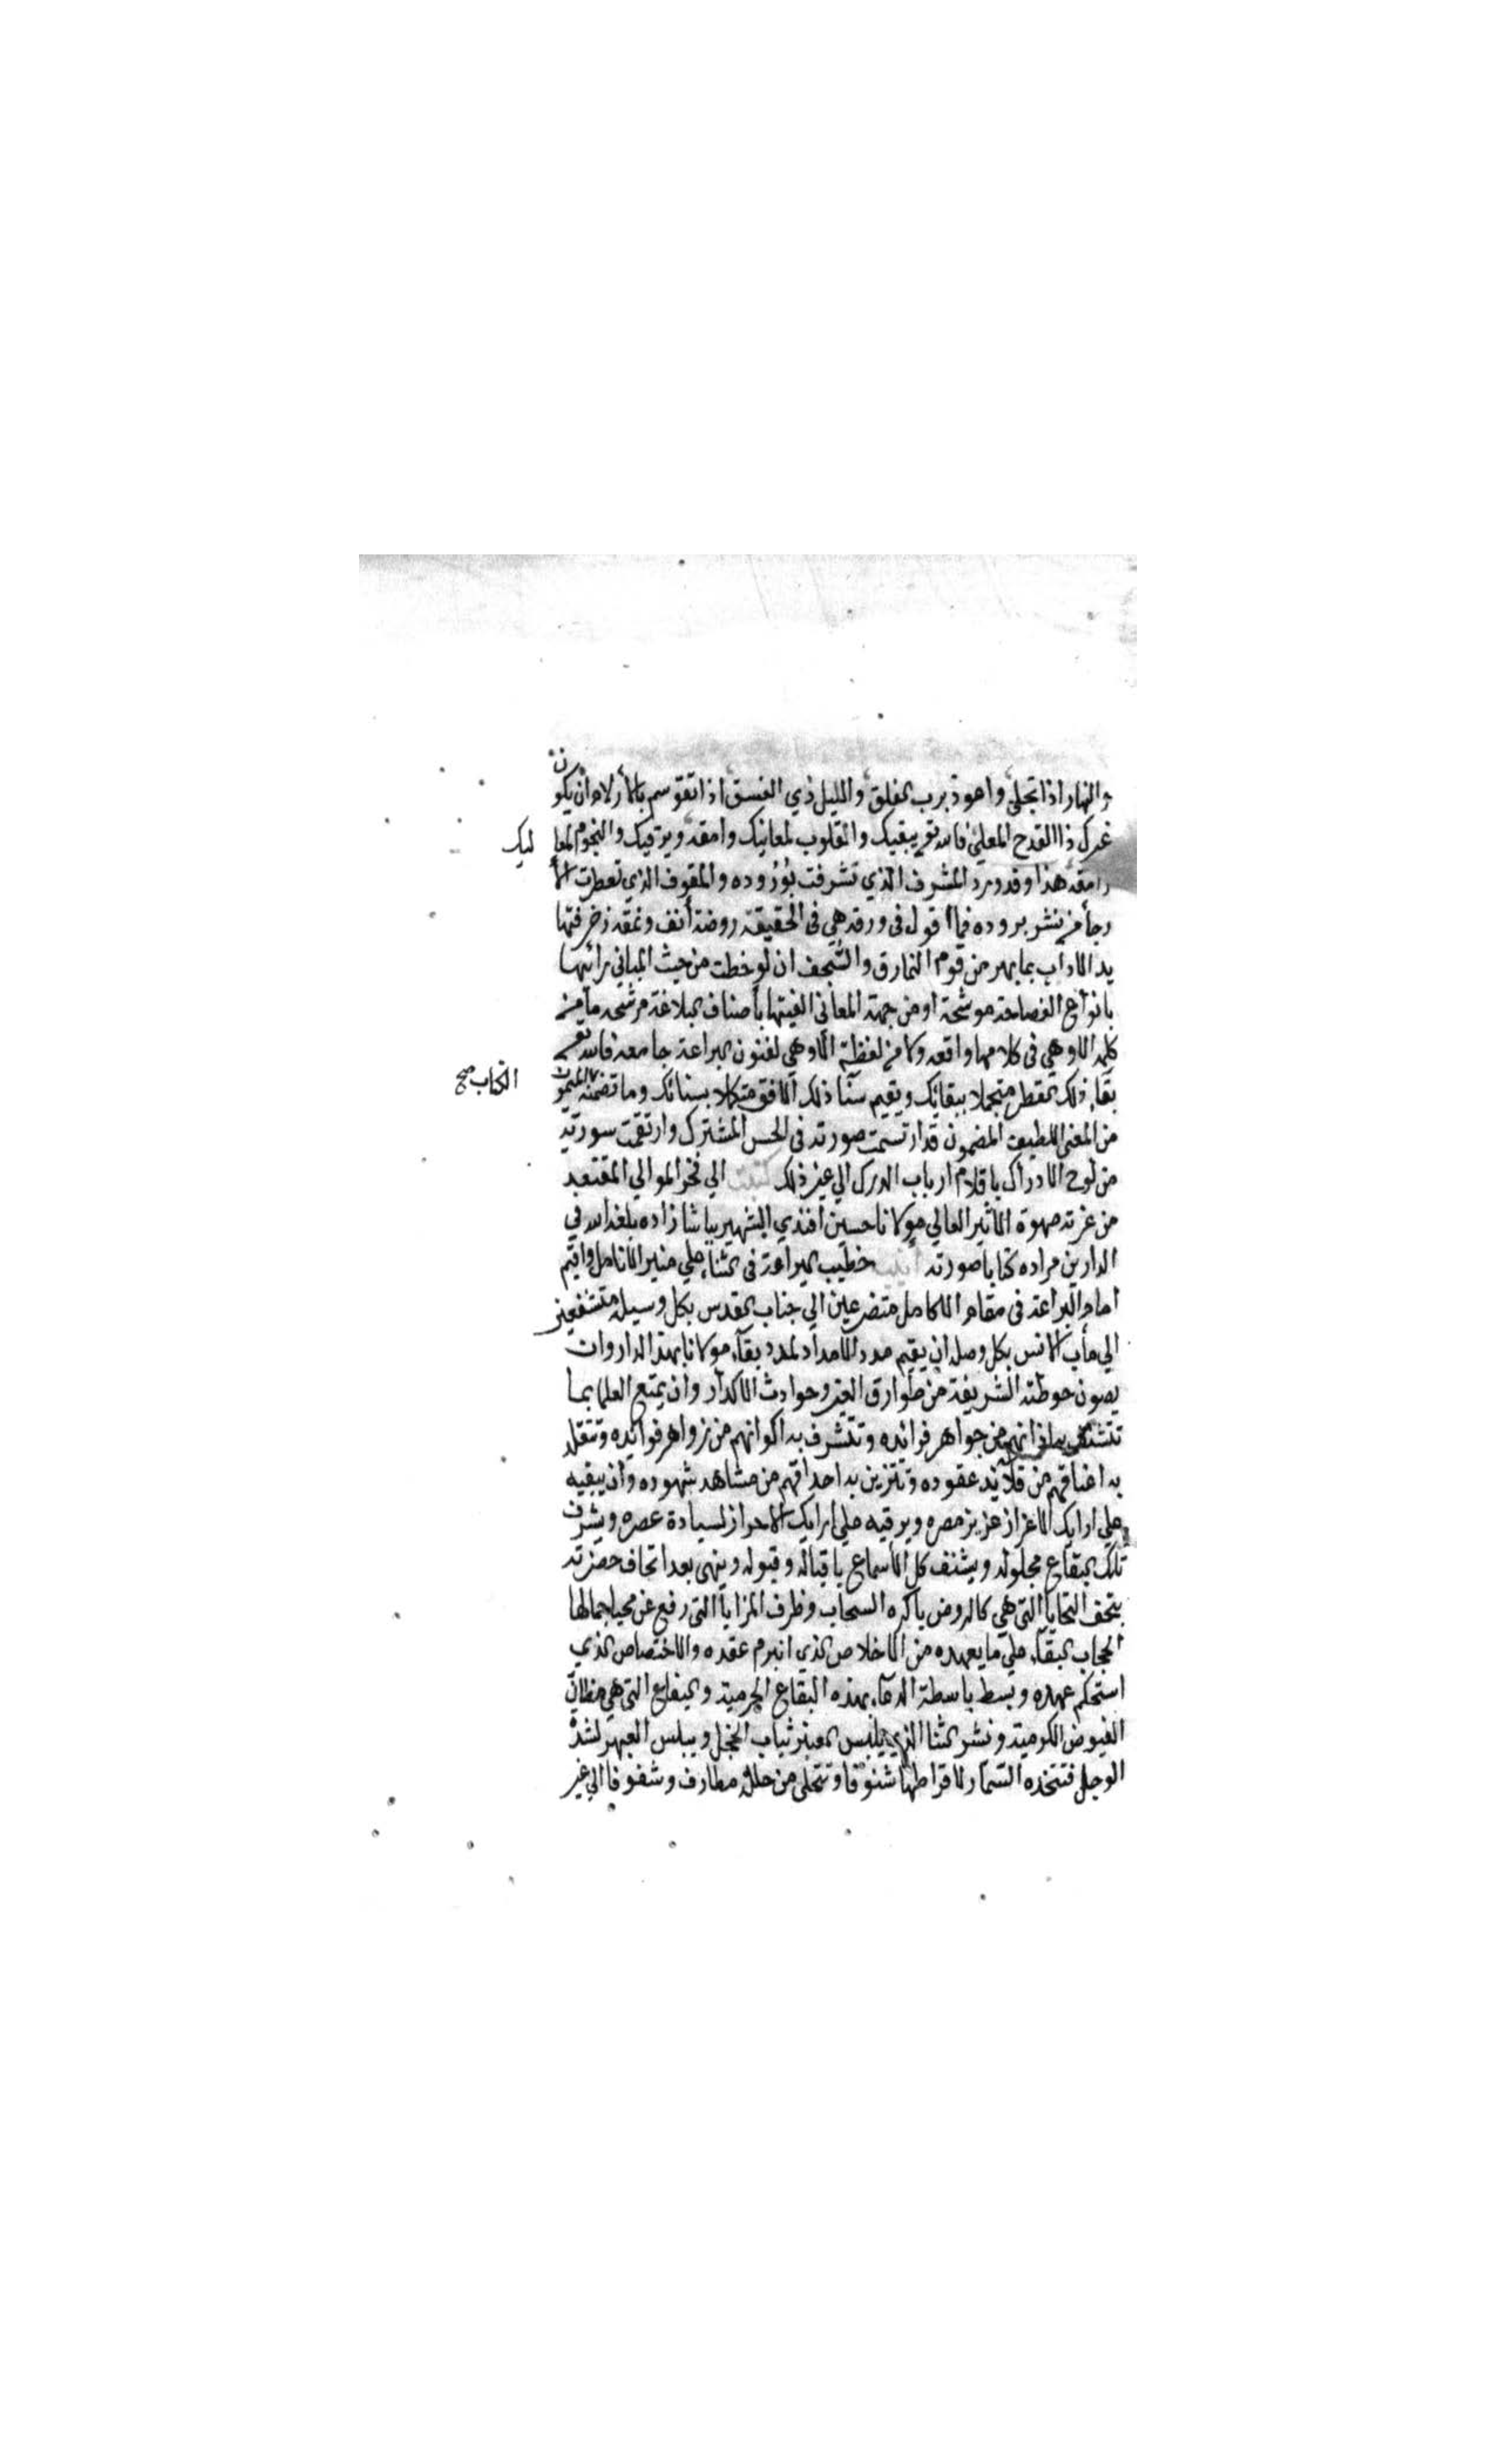 والنهار اذا تجلى واعوذ برب الفلق والليل ذي الغسق اذا تقوسم بالأزلام أن يكون
غيرك ذا القدح المعلى فالله تع يبقيك والقلوب لمعانيك وامقة ويرقيك والنجوم لمعا ليك
رامقة هذا وقد ورد المشرف الذي تشرفت بوُرُوده والمفوف الذي تعطرت الأ
رجأ من نشر بروده فما اقول في ورقة هي في الحقيقة روضة أنف ونمقة زخرفتها
يد الاداب بما يهر من قوم النمارق والسُّجف ان لوحظت من حيث المباني رأيتها
بانواع الفصاحة موشحة او من جهة المعاني الفيتها بأصناف البلاغة مرشحة ما من
كلمة الا وهي في كلامها واقعة ولا من لفظة الا وهي لفنون البراعة جامعة فالله تع
بقآء ذلك القطر متجملا ببقائك ويقيم سنآ ذلك الافق متكلا بسنائك وما تضمنه الميمون
الكتاب صح
من المعنى اللطيف المضمون قد ارتسمت صورته في الحس المشترك وارتقمت سورته
من لوح الادراك باقلام ارباب الدرك الي غير ذلك كتبت الي فخر الموالي المقتعد
من عزته صهوة الأثير العالي مولانا حسين افندي الشهير بباشا زاده بلغه الله في
الدارين مراده كتابا صورته خطيب البراعة في الثنآء علي منبر الانامل واقيم
امام البراعة في مقام الكامل متضرعين الي جناب القدس بكل وسيلة متشفعين
الي مآب الانس بكل وصلة ان يقيم مدد الامداد لمدد بقآء مولانا بهذا الدار وان
يصون حوطته الشريفة من طوارق الغير وحوادث الاكدار وان يمتع العلما بما
تتشنف به اذانهم من جواهر فرائده وتتشرف به اكوانهم من زواهر فوائده وتتقلد
به اعناقهم من قلائد عقوده وتتزين به احداقهم من مشاهد شهوده وأن يبقيه
علي ارايك الاعزاز عزيز مصره ويرقيه علي ارايك الاحراز لسيادة عصره ويشرف
تلك البقاع بحلوله ويشنف كل الأسماع باقباله وقبوله وينهى بعد اتحاف حضرته
بتحف التحايا التي هي كالروض باكره السحاب وظرف المزايا التي رفع عن محيا جمالها
الحجاب البقآء علي ما يعهده من الاخلاص الذي انبرم عقده والاختصاص الذي
استحكم عهده وبسط باسطة الدعآء بهذه البقاع الحرمية والبقاع التي هي مظان
الفيوض الكرمية ونشر الثنا الذي يلبس العنبر ثياب الخجل ويبلس العبهر لشدة
الوجل فتتخذه السمآء لاقراطها شنوفا وتتحلى من حلله مطارف وشفوفا الي غير